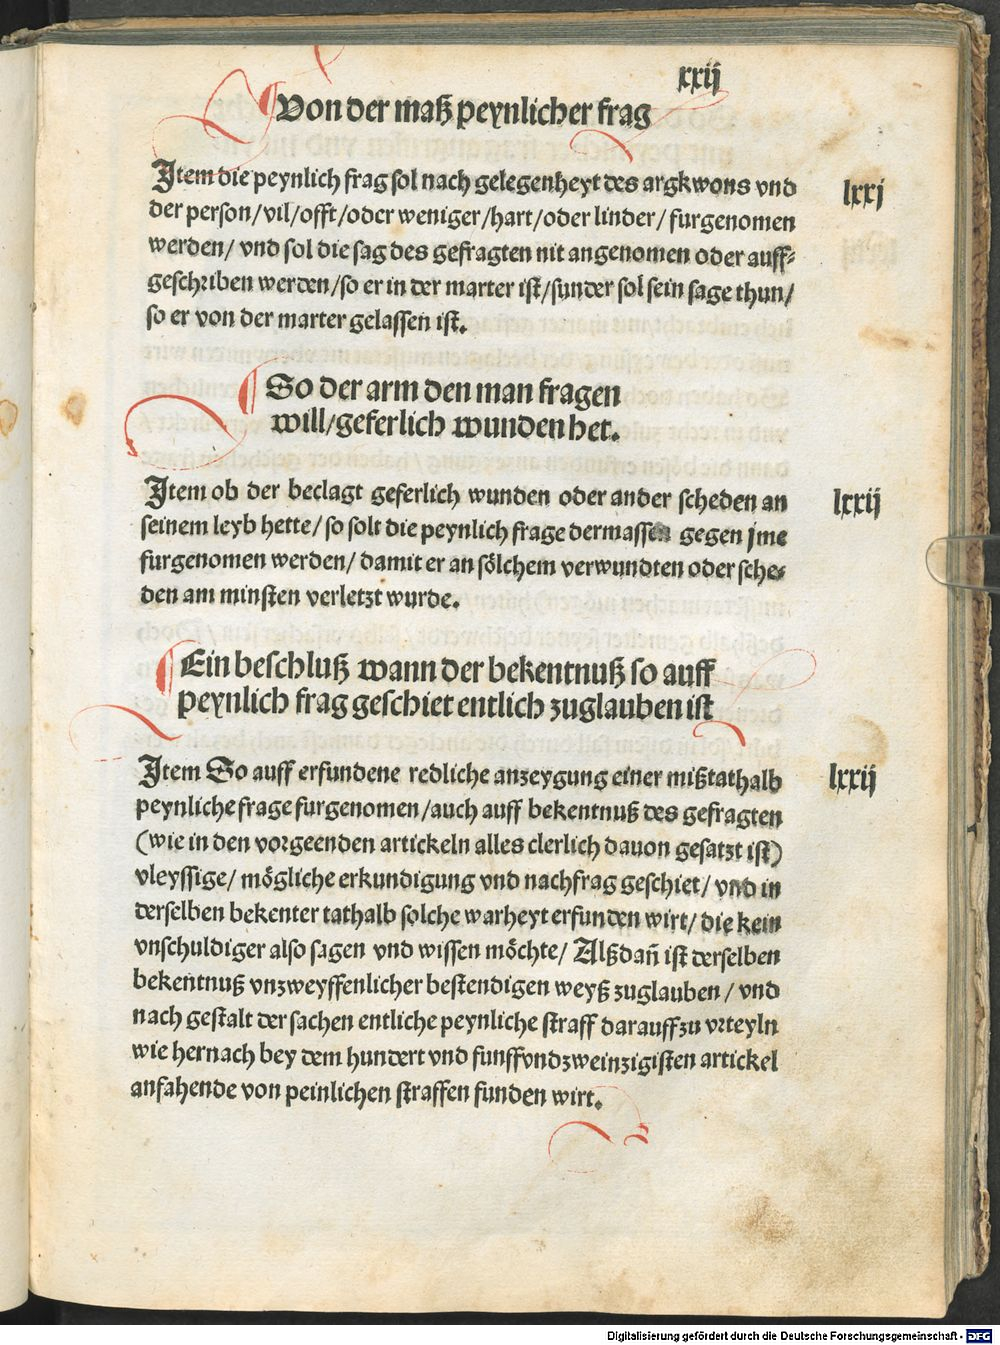 xxij
Von der maß peynlicher frag
Item die peynlich frag sol nach gelegenheyt des argkwons vnd
lxxj
der person/vil/offt/oder weniger/hart/oder linder/furgenomen
werden/ vnd sol die sag des gefragten nit angenomen oder auff-
geschriben werden/so er in der marter ist/sunder sol sein sage thun/
so er von der marter gelassen ist.
So der arm den man fragen
will/geferlich wunden het.
Item ob der beclagt geferlich wunden oder ander scheden an
lxxij
seinem leyb hette/so solt die peynlich frage dermassen gegen jme
furgenomen werden/ damit er an sölchem verwundten oder sche-
den am minsten verletzt wurde.
Ein beschluß wann der bekentnuß so auff
peynlich frag geschiet entlich zuglauben ist
Item So auff erfundene redliche anzeygung einer mißtathalb
lxxij
peynliche frage furgenomen/auch auff bekentnuß des gefragten
(wie in den vorgeenden artickeln alles clerlich dauon gesatzt ist)
vleyssige/ mögliche erkundigung vnd nachfrag geschiet/ vnd in
derselben bekenter tathalb solche warheyt erfunden wirt/ die kein
vnschuldiger also sagen vnd wissen möchte/ Alßdañ ist derselben
bekentnuß vnzweyffenlicher bestendigen weyß zuglauben/ vnd
nach gestalt der sachen entliche peynliche straff darauff zu vrteyln
wie hernach bey dem hundert vnd funffvndzweinzigisten artickel
anfahende von peinlichen straffen funden wirt.
Digitalisierung gefördert durch die Deutsche Forschungsgemeinschaft - DFG